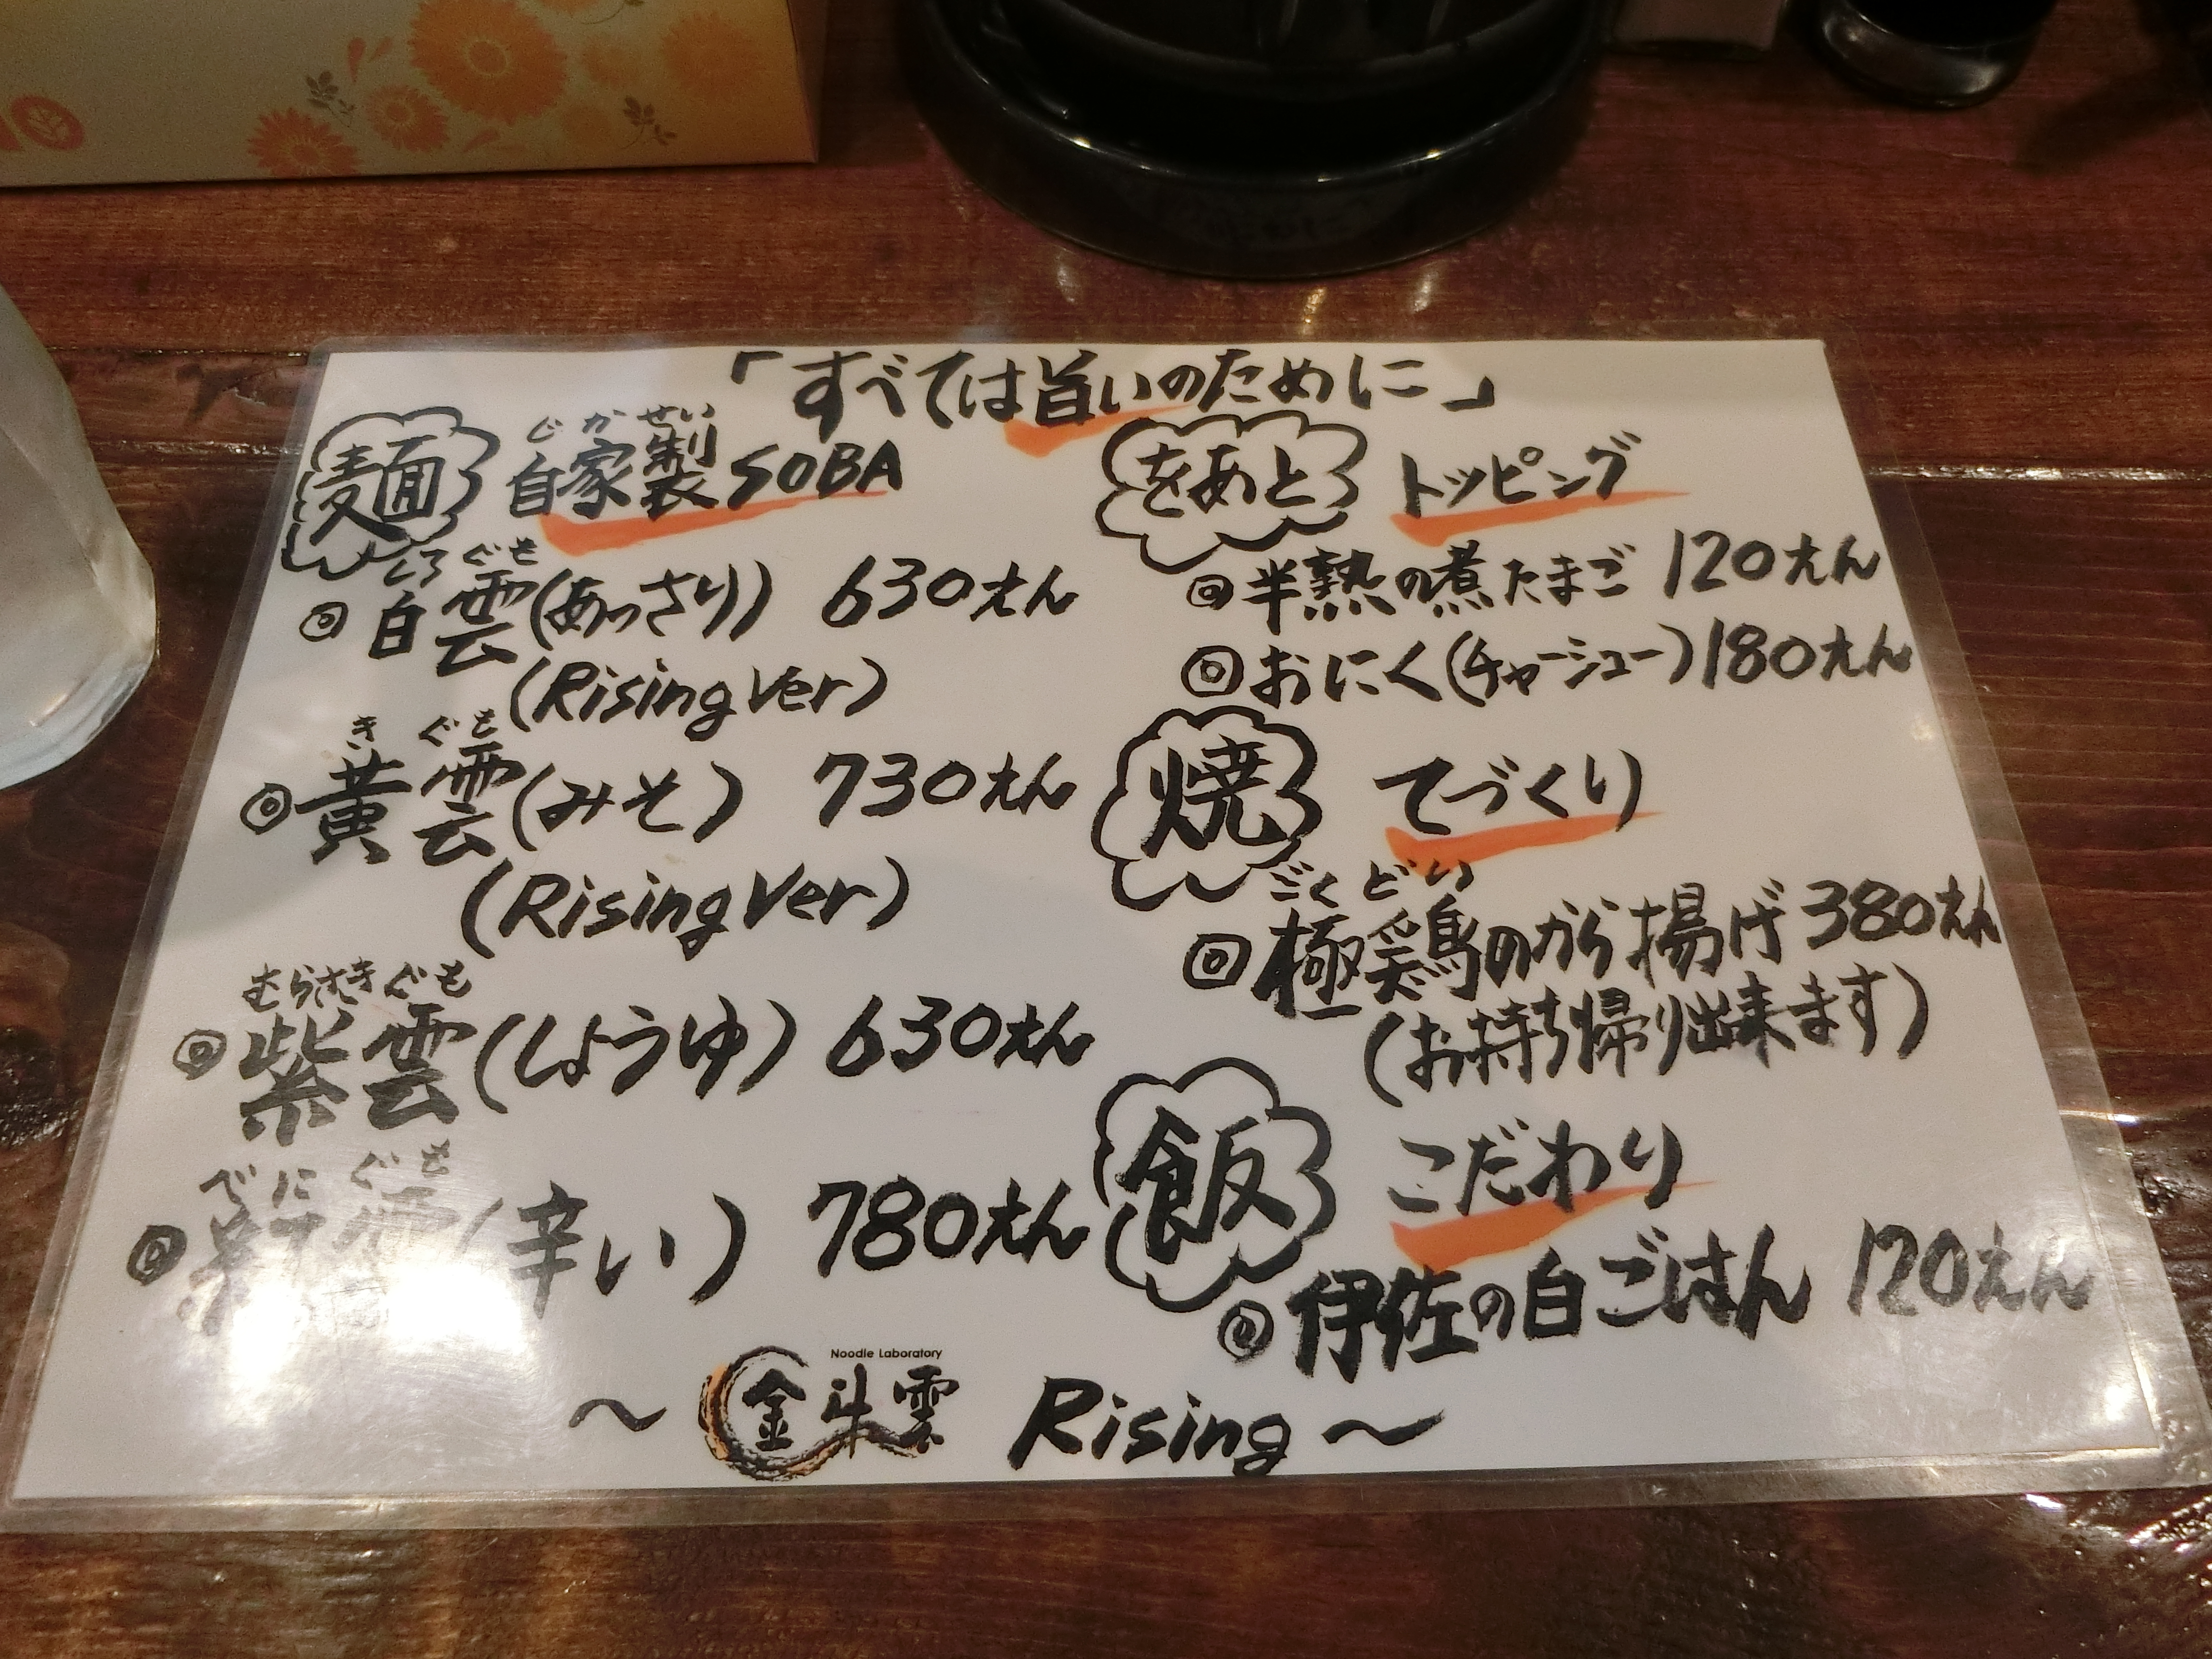 「すべては旨いのために」
麺 自家製SOBA
じかせい
◎白雲(あっさり) 630えん
しろぐも
(Rising Ver)
◎黄雲(みそ) 730えん
きぐも
(Rising Ver)
◎紫雲(しょうゆ) 630えん
むらさきぐも
◎紅雲(辛い) 780えん
べにぐも
をあと トッピング
◎半熟の煮たまご 120えん
◎おにく(チャーシュー) 180えん
焼 てづくり
◎極鶏のから揚げ 380えん
ごくどい
(お持ち帰り出来ます)
飯 こだわり
◎伊佐の白ごはん 120えん
Noodle Laboratory
〜 金斗雲 Rising 〜